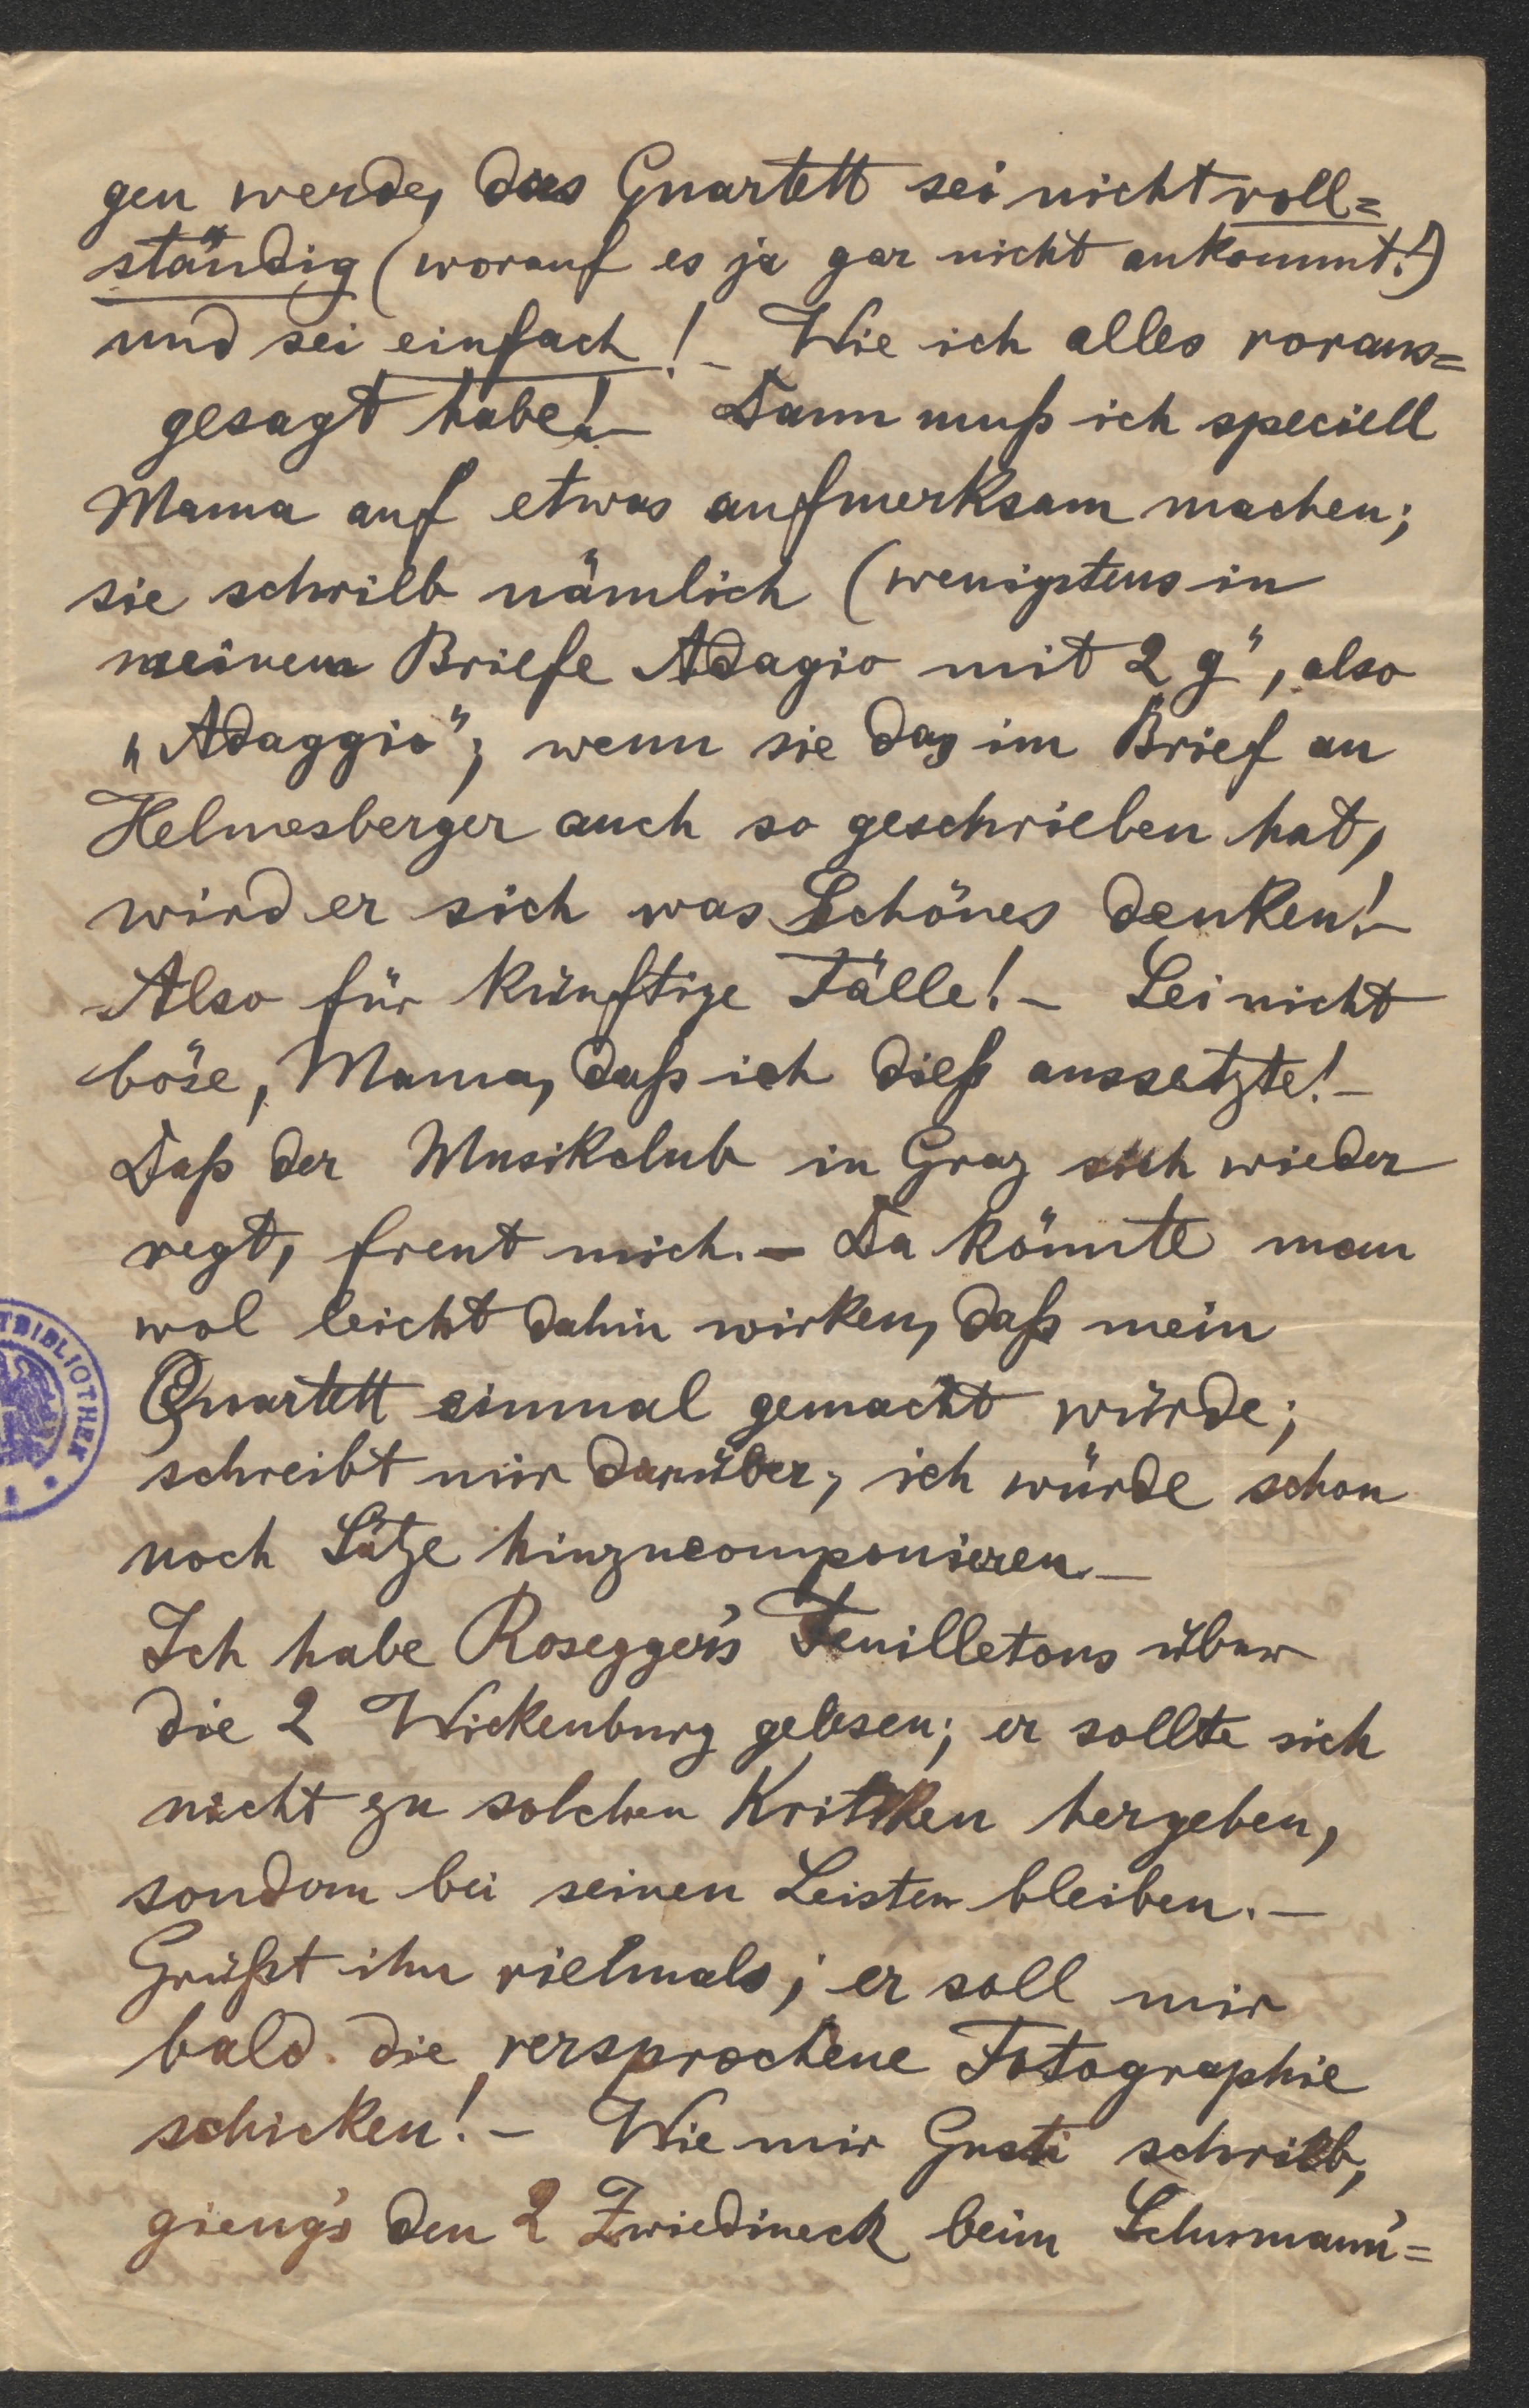 gen werde, das Quartett sei nicht voll=
ständig (worauf es ja gar nicht ankommt!)
und sei einfach! – Wie ich alles voraus=
gesagt habe! – Dann muß ich speciell
Mama auf etwas aufmerksam machen;
sie schrieb nämlich (wenigstens in
meinem Briefe Adagio mit 2 g", also
„Adaggio"; wenn sie das im Brief an
Helmesberger auch so geschrieben hat,
wird er sich was Schönes denken! –
Also für künftige Fälle! – Sei nicht
böse, Mama, daß ich dieß aussetzte! –
Daß der Musikclub in Graz sich wieder
regt, freut mich. – Da könnte man
wol leicht dahin wirken, daß mein
Quartett einmal gemacht würde;
schreibt mir darüber, ich würde schon
noch Sätze hinzucomponieren. –
Ich habe Rosegger's Feuilletons über
die 2 Wickenburg gelesen; er sollte sich
nicht zu solchen Kritiken hergeben,
sondern bei seinen Leisten bleiben. –
Grüßt ihn vielmals; er soll mir
bald die versprochene Fotographie
schicken! – Wie mir Gusti schrieb,
gieng's den 2 Zwiedineck beim Schumann'=
TBIBLIOTHEK